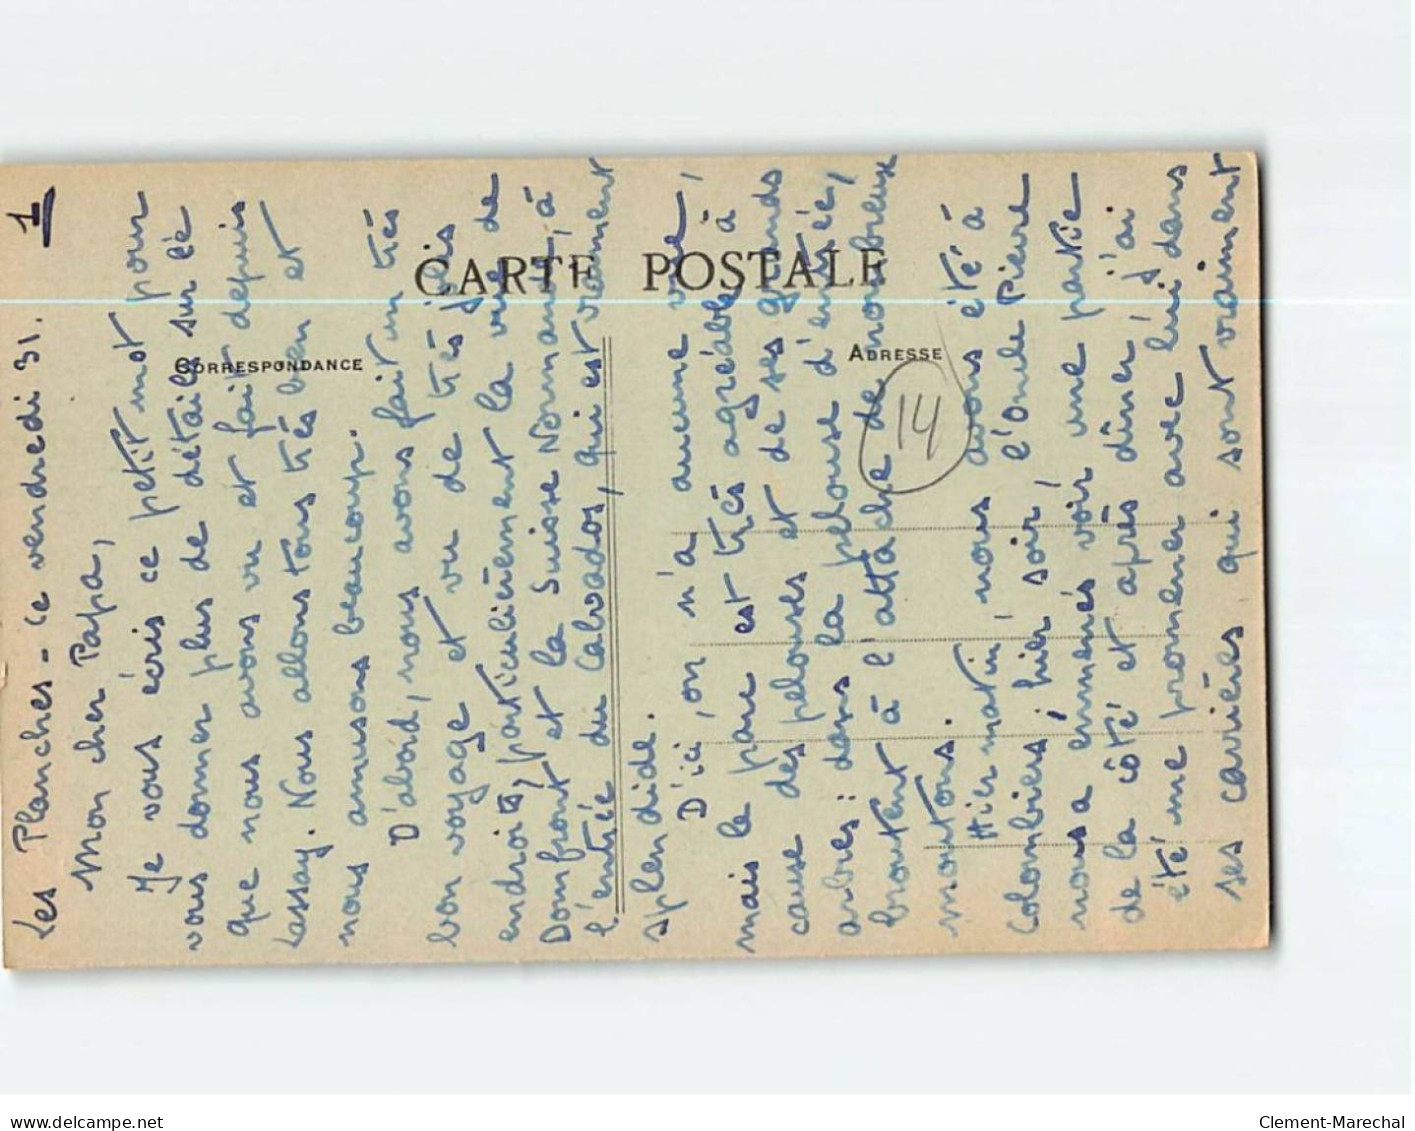 1
Les Planches - ce vendredi 31.
Mon cher Papa,
Je vous écris ce petit mot pour
vous donner plus de détails sur ce
que nous avons vu et fait depuis
Lassay. Nous allons tous très bien et
nous amusons beaucoup.
D'abord, nous avons fait un très
bon voyage et vu de très jolis
endroits, particulièrement la vue de
Domfront et la Suisse Normande, à
l'entrée du Calvados, qui est vraiment
splendide.
D'ici, on n'a aucune vue,
mais le parc est très agréable à
cause des pelouses et de ses grands
arbres : dans la pelouse d'entrée,
broutent à l'attache de nombreux
moutons.
Hier matin nous avons été à
Colombiers; hier soir, l'Oncle Pierre
nous a emmenés voir une partie
de la côté et après dîner, j'ai
été me promener avec lui dans
ses carrières qui sont vraiment
CARTE POSTALE
CORRESPONDANCE
ADRESSE
14
delcampe.net
Clement-Marechal